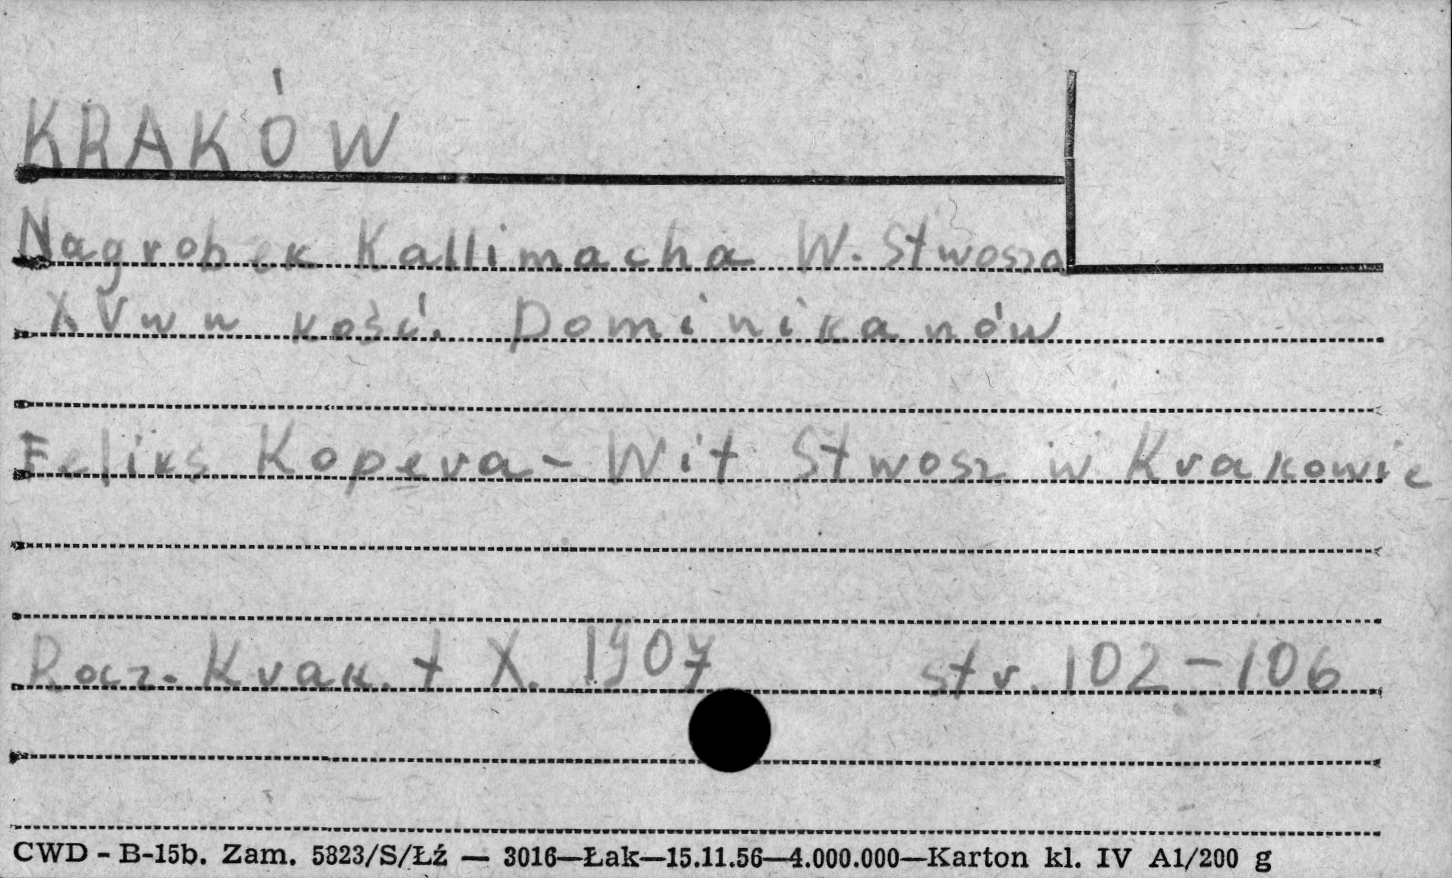 KRAKÓW
Nagrobek Kallimacha W. Stwosza
XV w w kość. Dominikanów
Feliks Kopera - Wit Stwosz w Krakowie
Rocz. Krak. t X. 1907 str. 102-106
CWD - B-15b. Zam. 5823/S/Łź — 3016—Łak—15.11.56—4.000.000—Karton kl. IV A1/200 g